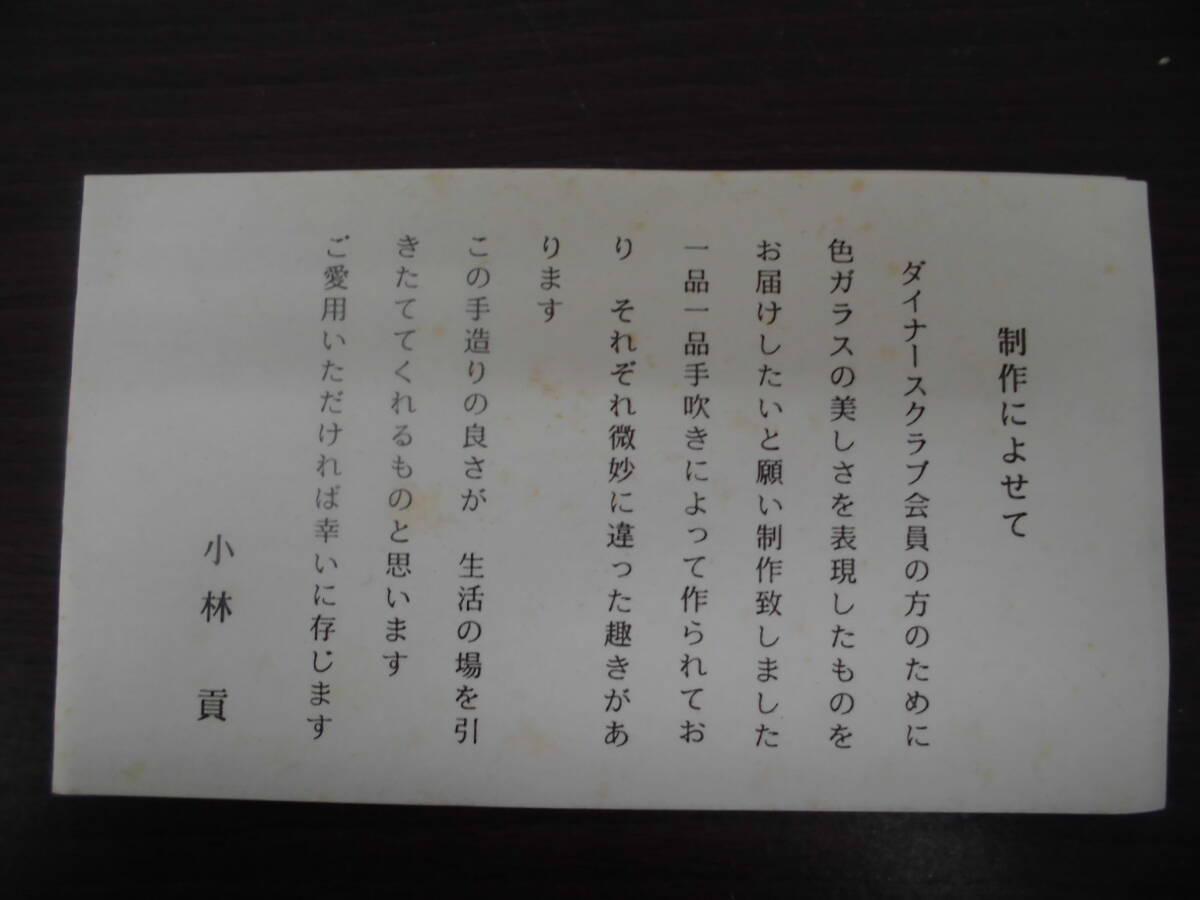 制作によせて
ダイナースクラブ会員の方のために
色ガラスの美しさを表現したものを
お届けしたいと願い制作致しました
一品一品手吹きによって作られてお
り　それぞれ微妙に違った趣きがあ
ります
この手造りの良さが　生活の場を引
きたててくれるものと思います
ご愛用いただければ幸いに存じます
小林　貢